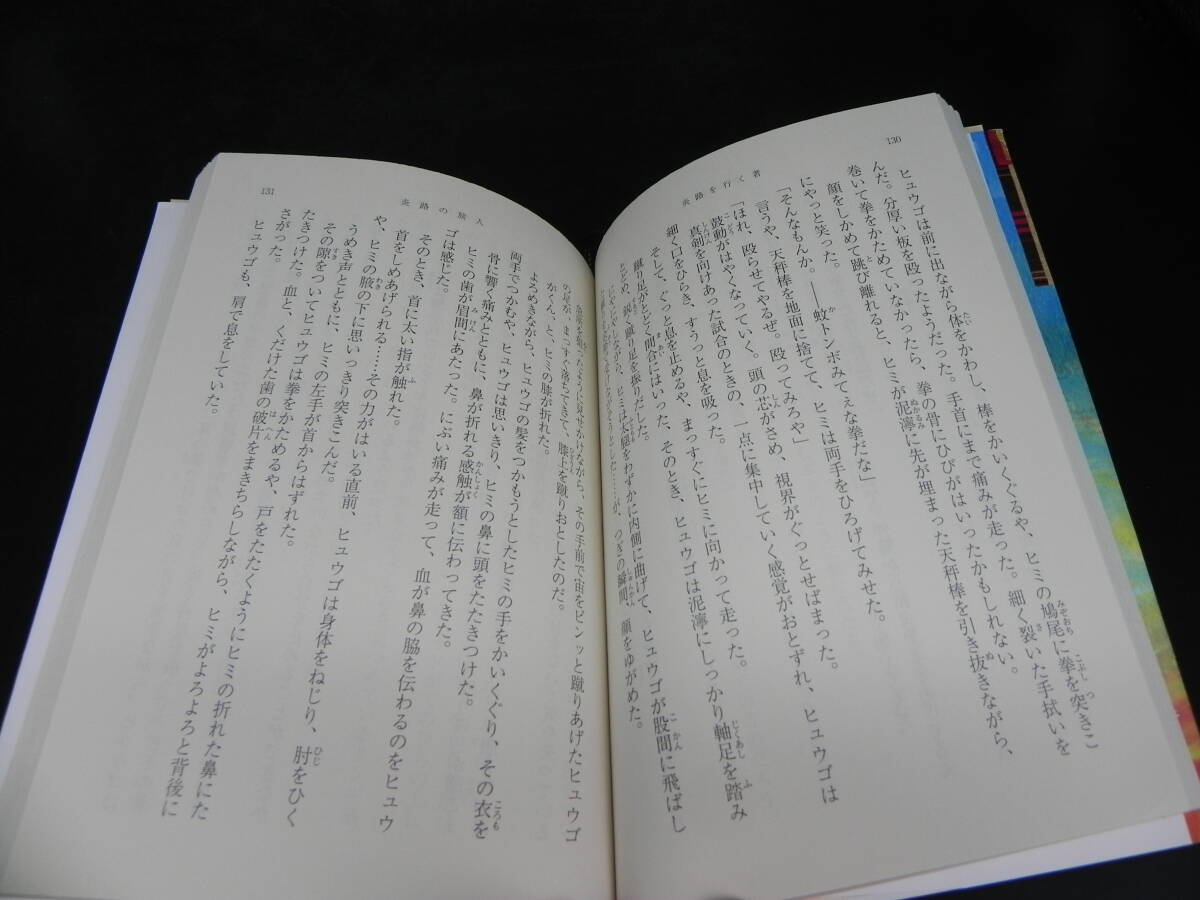 130
炎路を行く者
ヒュウゴは前に出ながら体をかわし、棒をかいくぐるや、ヒミの鳩尾に拳を突きこ
んだ。分厚い板を殴ったようだった。手首にまで痛みが走った。細く裂いた手拭いを
巻いて拳をかためていなかったら、拳の骨にひびがはいったかもしれない。
顔をしかめて跳び離れると、ヒミが泥濘に先が埋まった天秤棒を引き抜きながら、
にやっと笑った。
「そんなもんか。――蚊トンボみてぇな拳だな」
言うや、天秤棒を地面に捨てて、ヒミは両手をひろげてみせた。
「ほれ、殴らせてやるぜ。殴ってみろや」
鼓動がはやくなっていく。頭の芯がさめ、視界がぐっとせばまった。
真剣を向けあった試合のときの、一点に集中していく感覚がおとずれ、ヒュウゴは
細く口をひらき、すうっと息を吸った。
そして、ぐっと息を止めるや、まっすぐにヒミに向かって走った。
蹴り足がとどく間合にはいった、そのとき、ヒュウゴは泥濘にしっかり軸足を踏み
とどめ、鋭く蹴り足を振りだした。
にやにやしながら、ヒミは太腿をわずかに内側に曲げて、ヒュウゴが股間に飛ばし
つぎの瞬間、顔をゆがめた。
131
炎路の旅人
急所を狙ったように見せかけながら、その手前で宙をピンッと蹴りあげたヒュウゴ
の足が、まっすぐ落ちてきて、膝上を蹴りおとしたのだ。
がくん、と、ヒミの膝が折れた。
よろめきながら、ヒュウゴの髪をつかもうとしたヒミの手をかいくぐり、その衣を
両手でつかむや、ヒュウゴは思いきり、ヒミの鼻に頭をたたきつけた。
骨に響く痛みとともに、鼻が折れる感触が額に伝わってきた。
ヒミの歯が眉間にあたった。にぶい痛みが走って、血が鼻の脇を伝わるのをヒュウ
ゴは感じた。
そのとき、首に太い指が触れた。
首をしめあげられる……その力がはいる直前、ヒュウゴは身体をねじり、肘をひく
や、ヒミの腋の下に思いっきり突きこんだ。
うめき声とともに、ヒミの左手が首からはずれた。
その隙をついてヒュウゴは拳をかためるや、戸をたたくようにヒミの折れた鼻にた
たきつけた。血と、くだけた歯の破片をまきちらしながら、ヒミがよろよろと背後に
さがった。
ヒュウゴも、肩で息をしていた。